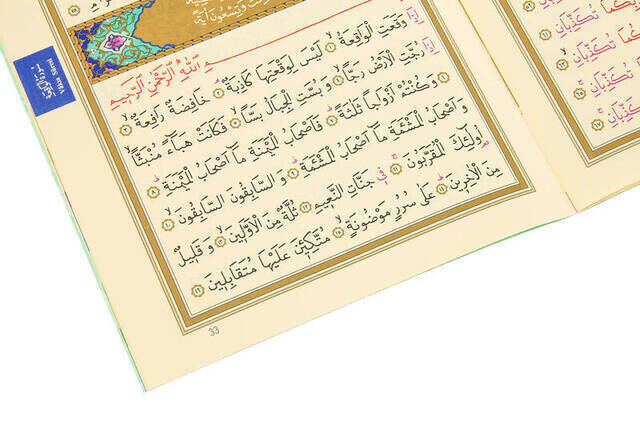 وَتِسْعُونَ اٰيَة
بِسْمِ اللّٰهِ الرَّحْمٰنِ الرَّحِيمِ
اِذَا وَقَعَتِ الْوَاقِعَةُۙ ١ لَيْسَ لِوَقْعَتِهَا كَاذِبَةٌۢ ٢ خَافِضَةٌ رَافِعَةٌۙ ٣
اِذَا رُجَّتِ الْاَرْضُ رَجًّاۙ ٤ وَبُسَّتِ الْجِبَالُ بَسًّاۙ ٥ فَكَانَتْ هَبَٓاءً مُنْبَثًّاۙ ٦
وَكُنْتُمْ اَزْوَاجًا ثَلٰثَةًۜ ٧ فَاَصْحَابُ الْمَيْمَنَةِ مَٓا اَصْحَابُ الْمَيْمَنَةِۜ ٨
وَاَصْحَابُ الْمَشْـَٔمَةِ مَٓا اَصْحَابُ الْمَشْـَٔمَةِۜ ٩ وَالسَّابِقُونَ السَّابِقُونَۙ ١٠
اُو۬لٰٓئِكَ الْمُقَرَّبُونَۚ ١١ فِي جَنَّاتِ النَّعِيمِ ١٢ ثُلَّةٌ مِنَ الْاَوَّلِينَۙ ١٣ وَقَلِيلٌ
مِنَ الْاٰخِرِينَۜ ١٤ عَلٰى سُرُرٍ مَوْضُونَةٍۙ ١٥ مُتَّكِـ۪ٔينَ عَلَيْهَا مُتَقَابِلِينَ ١٦
33
Yâsin Sûresi
تُكَذِّبَانِ
تُكَذِّبَانِ
تُكَذِّبَانِ
تُكَذِّبَانِ